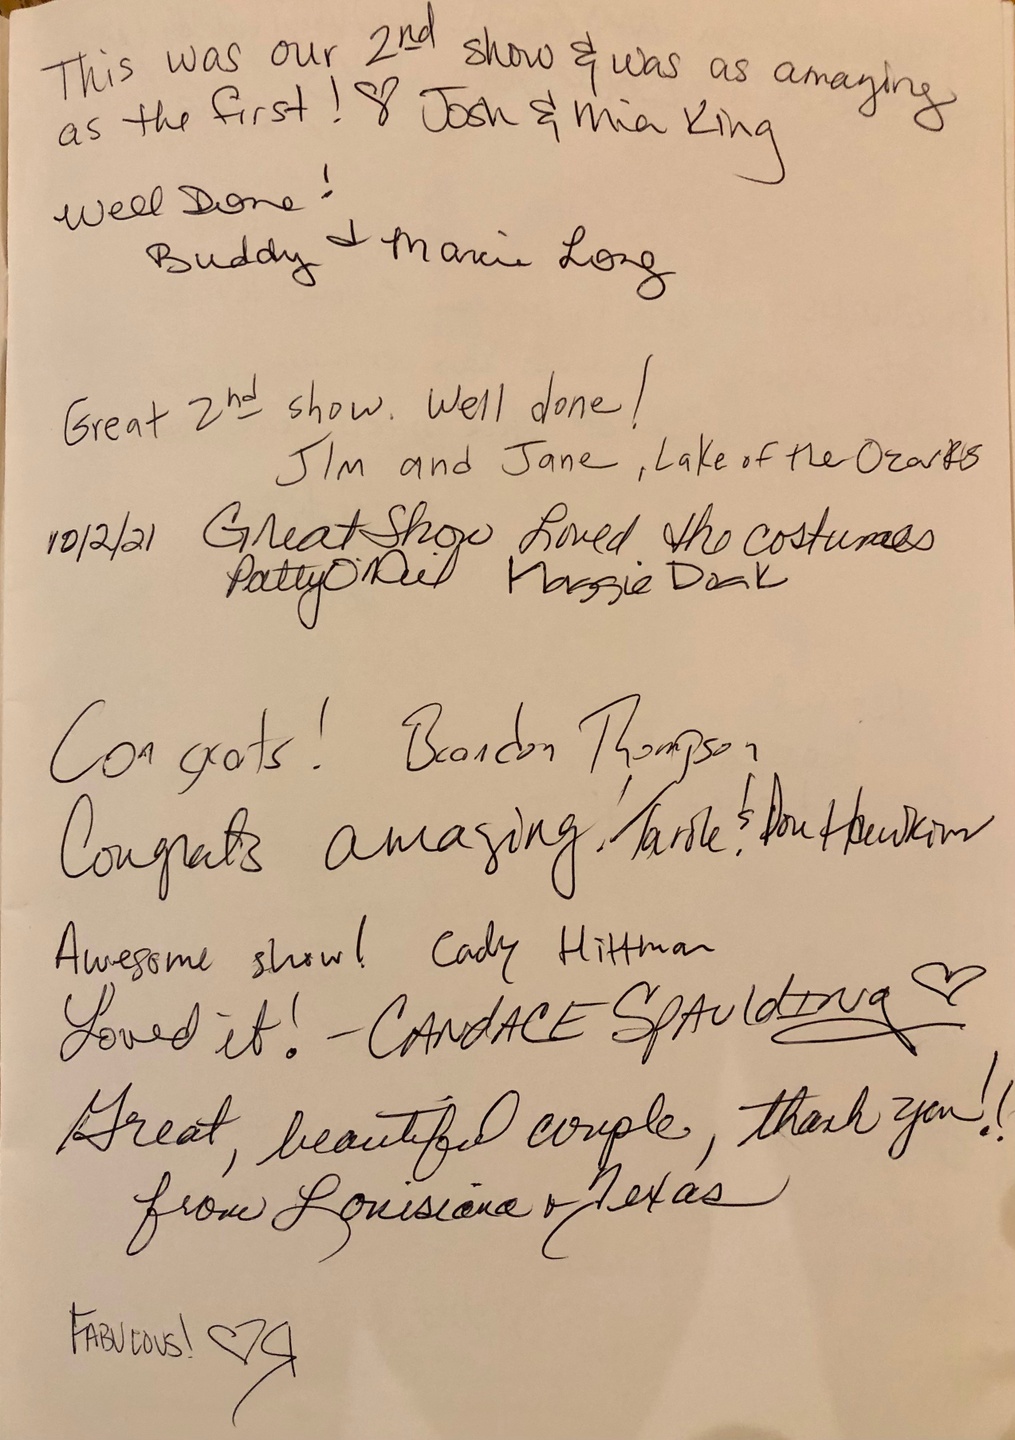 This was our 2nd show & was as amazing
as the first! ♡ Josh & Mia King
Well Done!
Buddy & Marcie Long
Great 2nd show. Well done!
Jim and Jane, Lake of the Ozarks
10/2/21 Great Show Loved the costumes
Patty Maggie
Congrats! Brandon Thompson
Congrats amazing! & Don Hawkins
Awesome show! Cady Hittman
Loved it! - CANDACE SPAULDING ♡
Great, beautiful couple, thank you!!
from Louisiana & Texas
FABULOUS! ♡